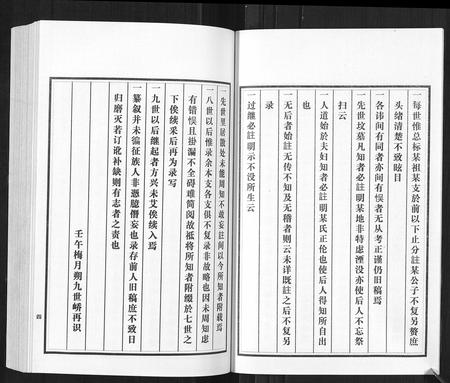 一每世惟总标某祖某支於前以下止分註某公子不复另赘庶
头绪清楚不致眩目
一各讳间有同者亦间有悮者无从考正谨仍旧稿焉
一先世坟墓凡知者必註明某地非特虑湮没亦使后人不忘祭
扫云
一人道始于夫妇知者必註明某氏正伦也使后人得知所自出
也
一无后者始註无传不知及无稽者则云未详既註之后不复另
录
一过继必註明示不没所生云
一先世里居散处未能周知不敢妄註间以今所知者附载焉
一八世以后惟录余本支各支俱不复录非故略也因未周知虑
有错悮且掛漏不全碍难简阅故祗将所知者附缀於七世之
下俟续采后再为录写
一九世以后继起者方兴未艾俟续入焉
一纂叙并未徧征族人非愿臆僭妄也录存前人旧稿庶不致日
归磨灭若订讹补缺则有志者之责也
壬午梅月朔九世峤再识
四